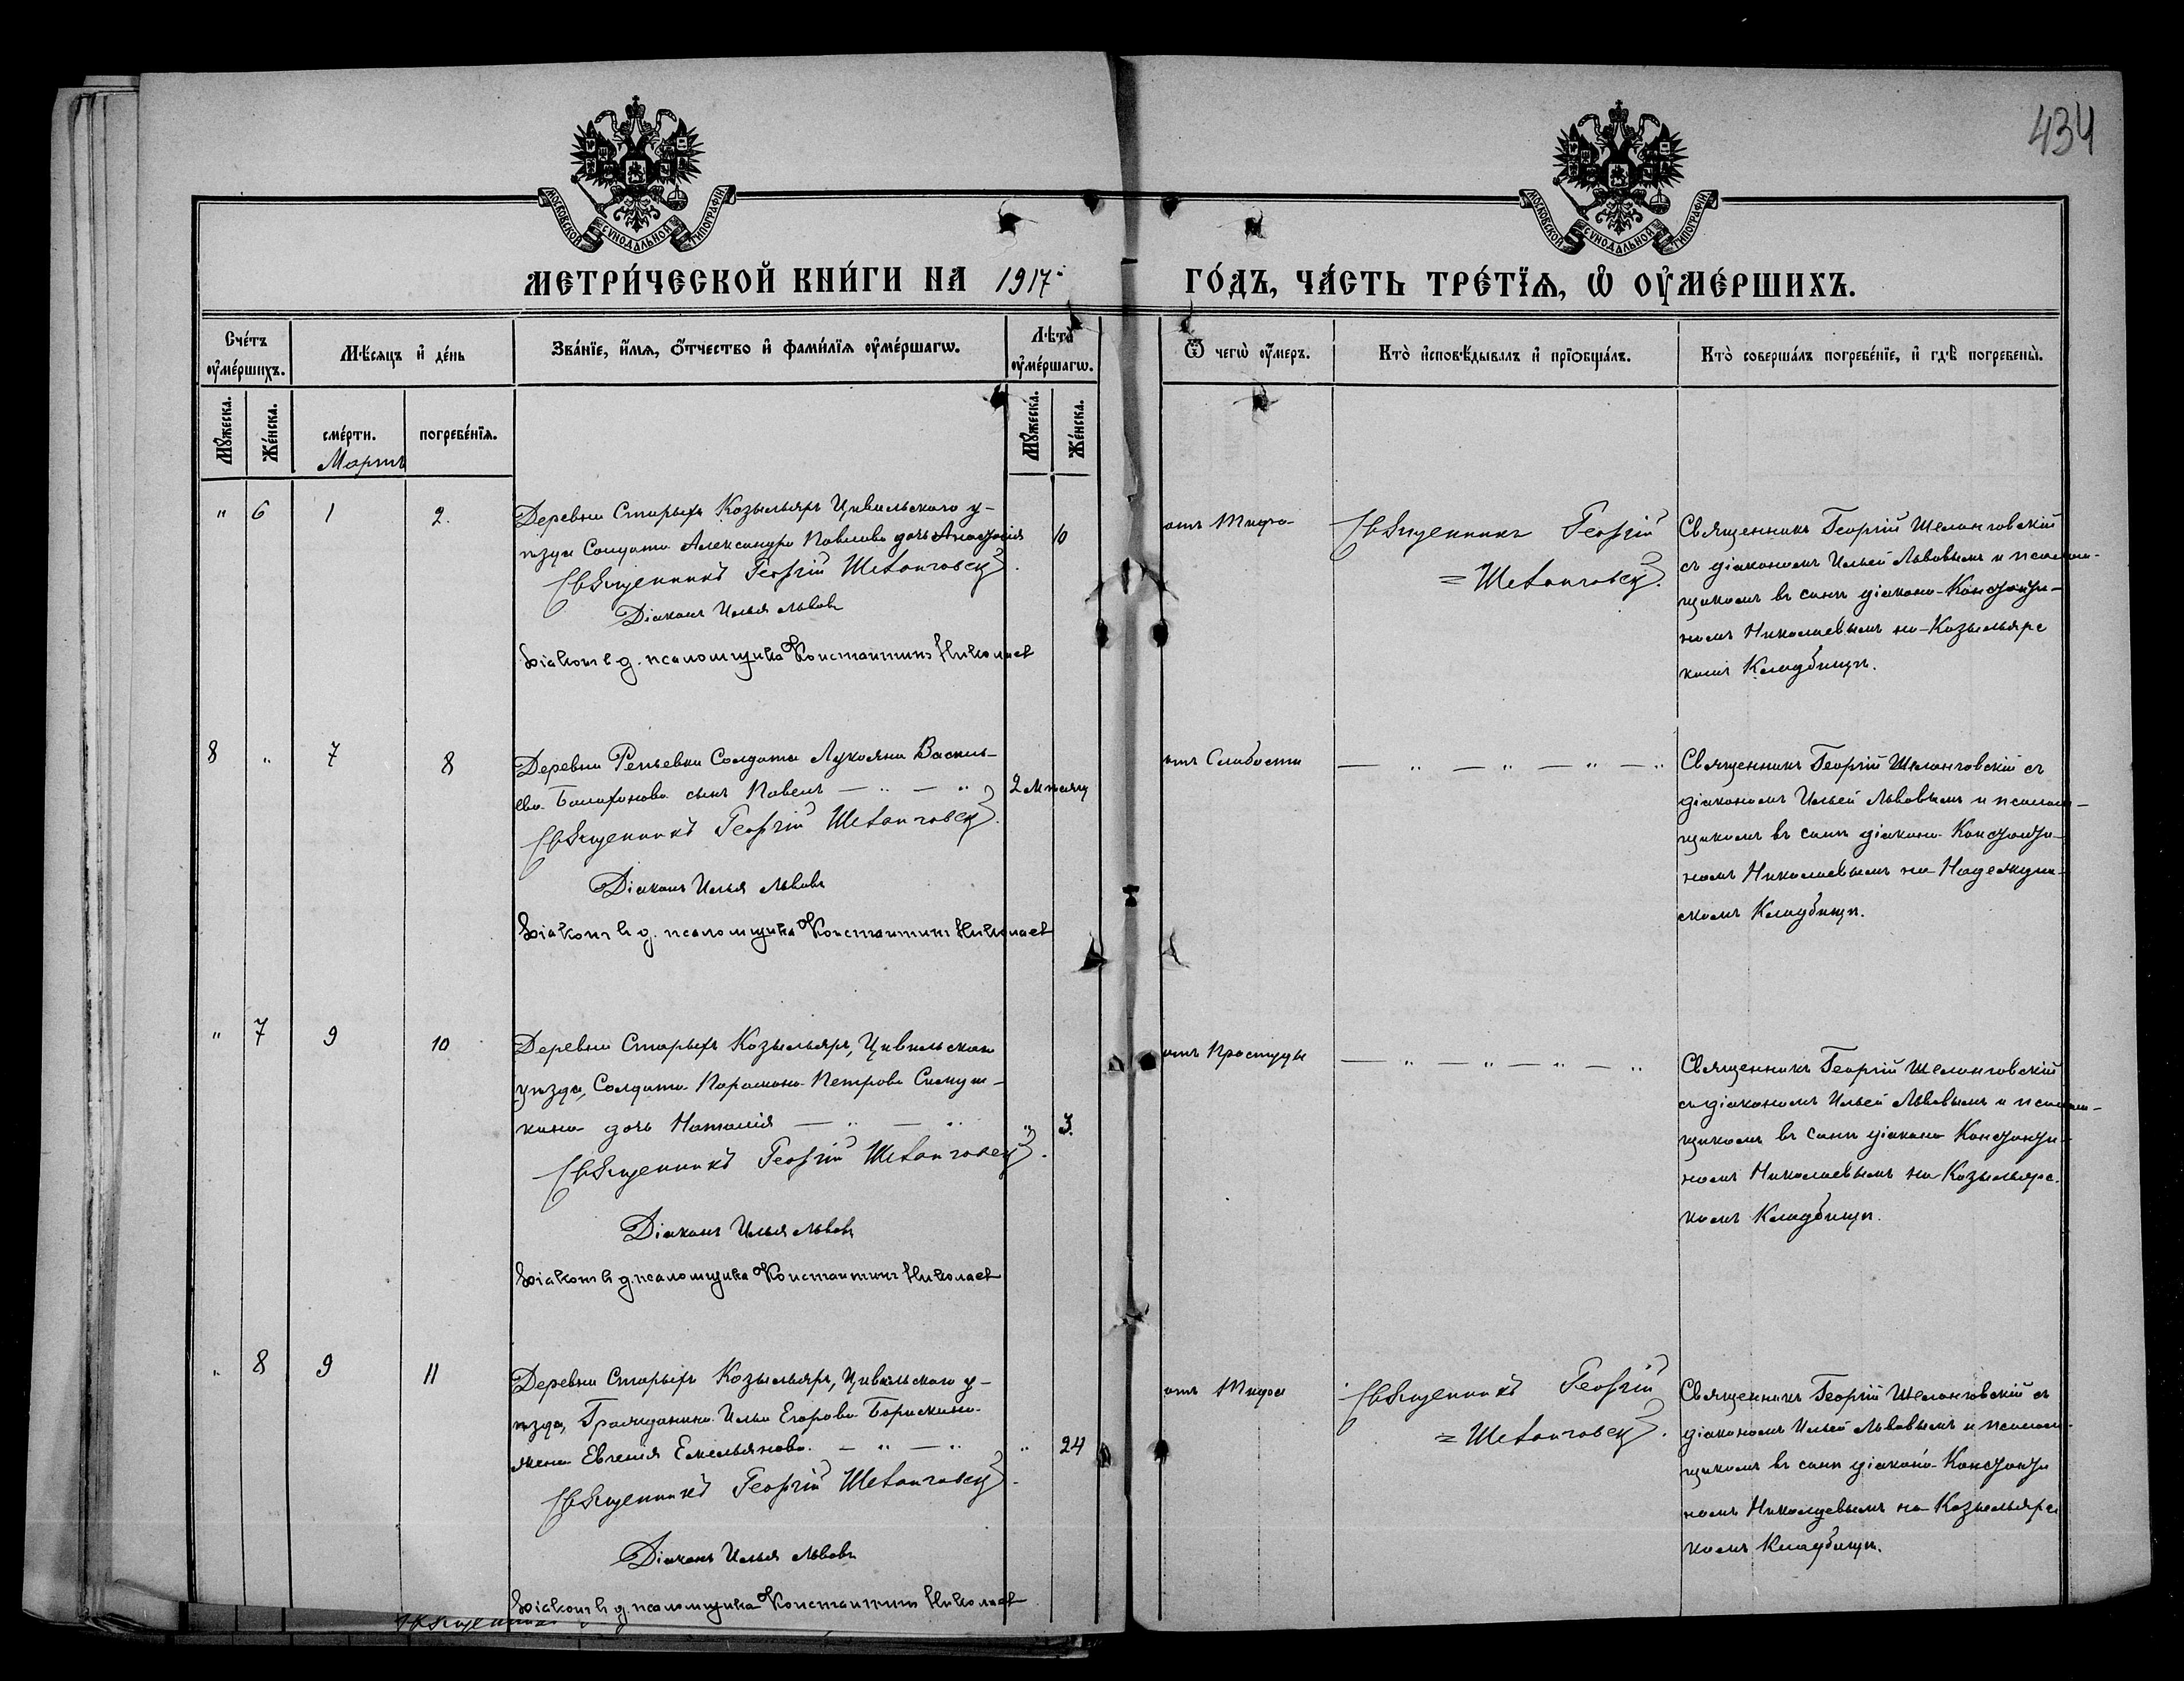 434
МОСКОВСКОЙ СѴНОДАЛЬНОЙ ТИПОГРАФІИ
МОСКОВСКОЙ СѴНОДАЛЬНОЙ ТИПОГРАФІИ
МЕТРИ́ЧЕСКОЙ КНИ́ГИ НА 1917 ГО́ДЪ, ЧА́СТЬ ТРЕ́ТЇѦ, Ѡ ОУМЕ́РШИХЪ.
Сче́тъ оуме́ршихъ.
Мѣ́сяцъ и де́нь
Зва́нїе, и́мя, о́тчество и фами́лїя оуме́ршагѡ.
Лѣ́та оуме́ршагѡ.
Ѿ чегѡ̀ оу́меръ.
Кто̀ исповѣ́дывалъ и прїѡбща́лъ.
Кто̀ соверша́лъ погребе́нїе, и гдѣ̀ погребены̀.
Му́жеска.
Же́нска.
сме́рти.
погребе́нїя.
Му́жеска.
Же́нска.
Мартъ
" 6 1 2.
Деревни Старыхъ Козыльяръ Цивильскаго у-
ѣзда Солдата Александра Павлова дочь Анастасія 10
Священникъ Георгій Шелонговскій.
Діаконъ Илья Львовъ
Діаконъ в д. псаломщика Константинъ Николаев
отъ Тифа
Священникъ Георгій
= Шелонговскій.
Священникъ Георгій Шелонговскій
съ діакономъ Ильей Львовымъ и псалом-
щикомъ въ санѣ діакона Константи-
номъ Николаевымъ на Козыльярс
комъ Кладбищѣ.
8 " 7 8
Деревни Репьевки Солдата Лукояна Василь-
ева сынъ Павелъ — " — " 2 мѣсяц
Священникъ Георгій Шелонговскій.
Діаконъ Илья Львовъ
Діаконъ в д. псаломщика Константинъ Николаев
отъ Слабости
— " — " — " — "
Священникъ Георгій Шелонговскій съ
діакономъ Ильей Львовымъ и псалом-
щикомъ въ санѣ діакона Константи-
номъ Николаевымъ на
скомъ Кладбищѣ.
" 7 9 10
Деревни Старыхъ Козыльяръ, Цивильскаго
уѣзда, Солдата Парамона Петрова
кина дочь Наталія — " — " " 3.
Священникъ Георгій Шелонговскій.
Діаконъ Илья Львовъ
Діаконъ в д. псаломщика Константинъ Николаев
отъ Простуды
— " — " — " — "
Священникъ Георгій Шелонговскій
съ діакономъ Ильей Львовымъ и псалом-
щикомъ въ санѣ діакона Константи-
номъ Николаевымъ на Козыльярс.
комъ Кладбищѣ.
" 8 9 11
Деревни Старыхъ Козыльяръ, Цивильскаго у-
ѣзда, Гражданина Ильи Егорова Борискина
жена Евгенія Емельянова. — " — " " 24
Священникъ Георгій Шелонговскій.
Діаконъ Илья Львовъ
Діаконъ в д. псаломщика Константинъ Николаев
отъ Тифа
Священникъ Георгій
= Шелонговскій.
Священникъ Георгій Шелонговскій съ
діакономъ Ильей Львовымъ и псалом-
щикомъ въ санѣ діакона Константи
номъ Николаевымъ на Козыльярс
комъ Кладбищѣ.